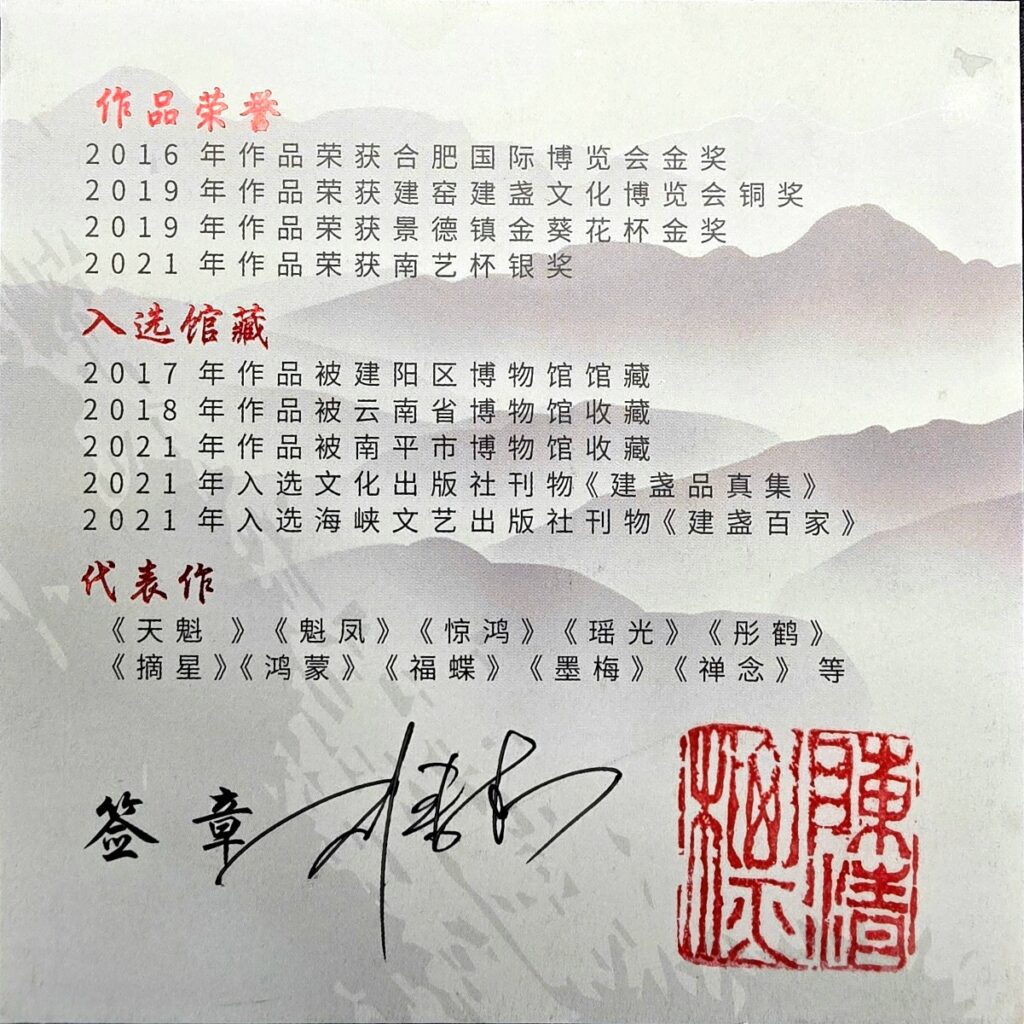 作品荣誉
2016 年作品荣获合肥国际博览会金奖
2019 年作品荣获建窑建盏文化博览会铜奖
2019 年作品荣获景德镇金葵花杯金奖
2021 年作品荣获南艺杯银奖
入选馆藏
2017 年作品被建阳区博物馆馆藏
2018 年作品被云南省博物馆收藏
2021 年作品被南平市博物馆收藏
2021 年入选文化出版社刊物《建盏品真集》
2021 年入选海峡文艺出版社刊物《建盏百家》
代表作
《天魁 》《魁凤》《惊鸿》《瑶光》《彤鹤》
《摘星》《鸿蒙》《福蝶》《墨梅》《禅念》等
签 章
陳清